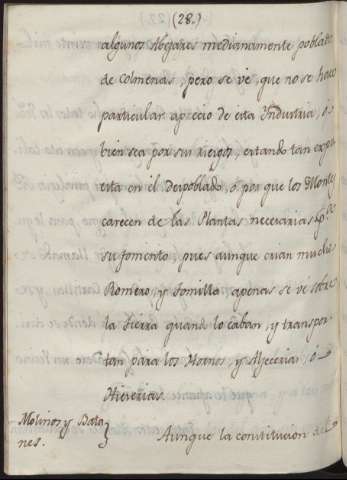 (28.)
algunos Abejares medianamente poblados
de Colmenas, pero se vé, que no se hace
particular aprecio de esta Industria, ó
bien sea por sus riesgos, estando tan expu
esta en el despoblado, ó por que los Montes
carecen de las Plantas necesarias p.ª
su fomento, pues aunque crian mucho
Romero, y Tomillo apenas se vé sobre
la tierra quando lo caban, y transpor-
tan para los Hornos, y Yeceria, ó
Molinos y Bata
nes.
Aunque la constitucion de